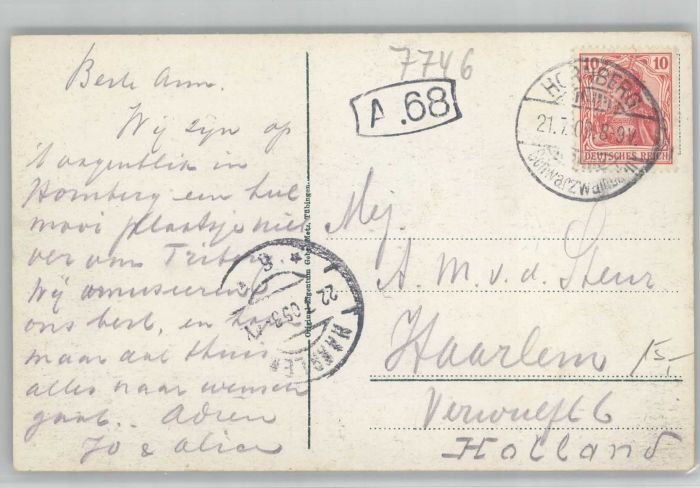 7746
Beste Ann.
Wij zijn op
't oogenblik in
Hornberg een heel
mooi plaatsje niet
ver van Triberg.
Wij amuseeren
ons best, en
maar dat thuis
alles naar wensch
gaat. Adieu
Jo & Alice
A .68
10 10
DEUTSCHES REICH
HORNBERG
21.7.09 8-9V
HAARLEM
22
Mej.
A. M. v. d. Steur
Haarlem
15,-
Verwulft 6
Holland